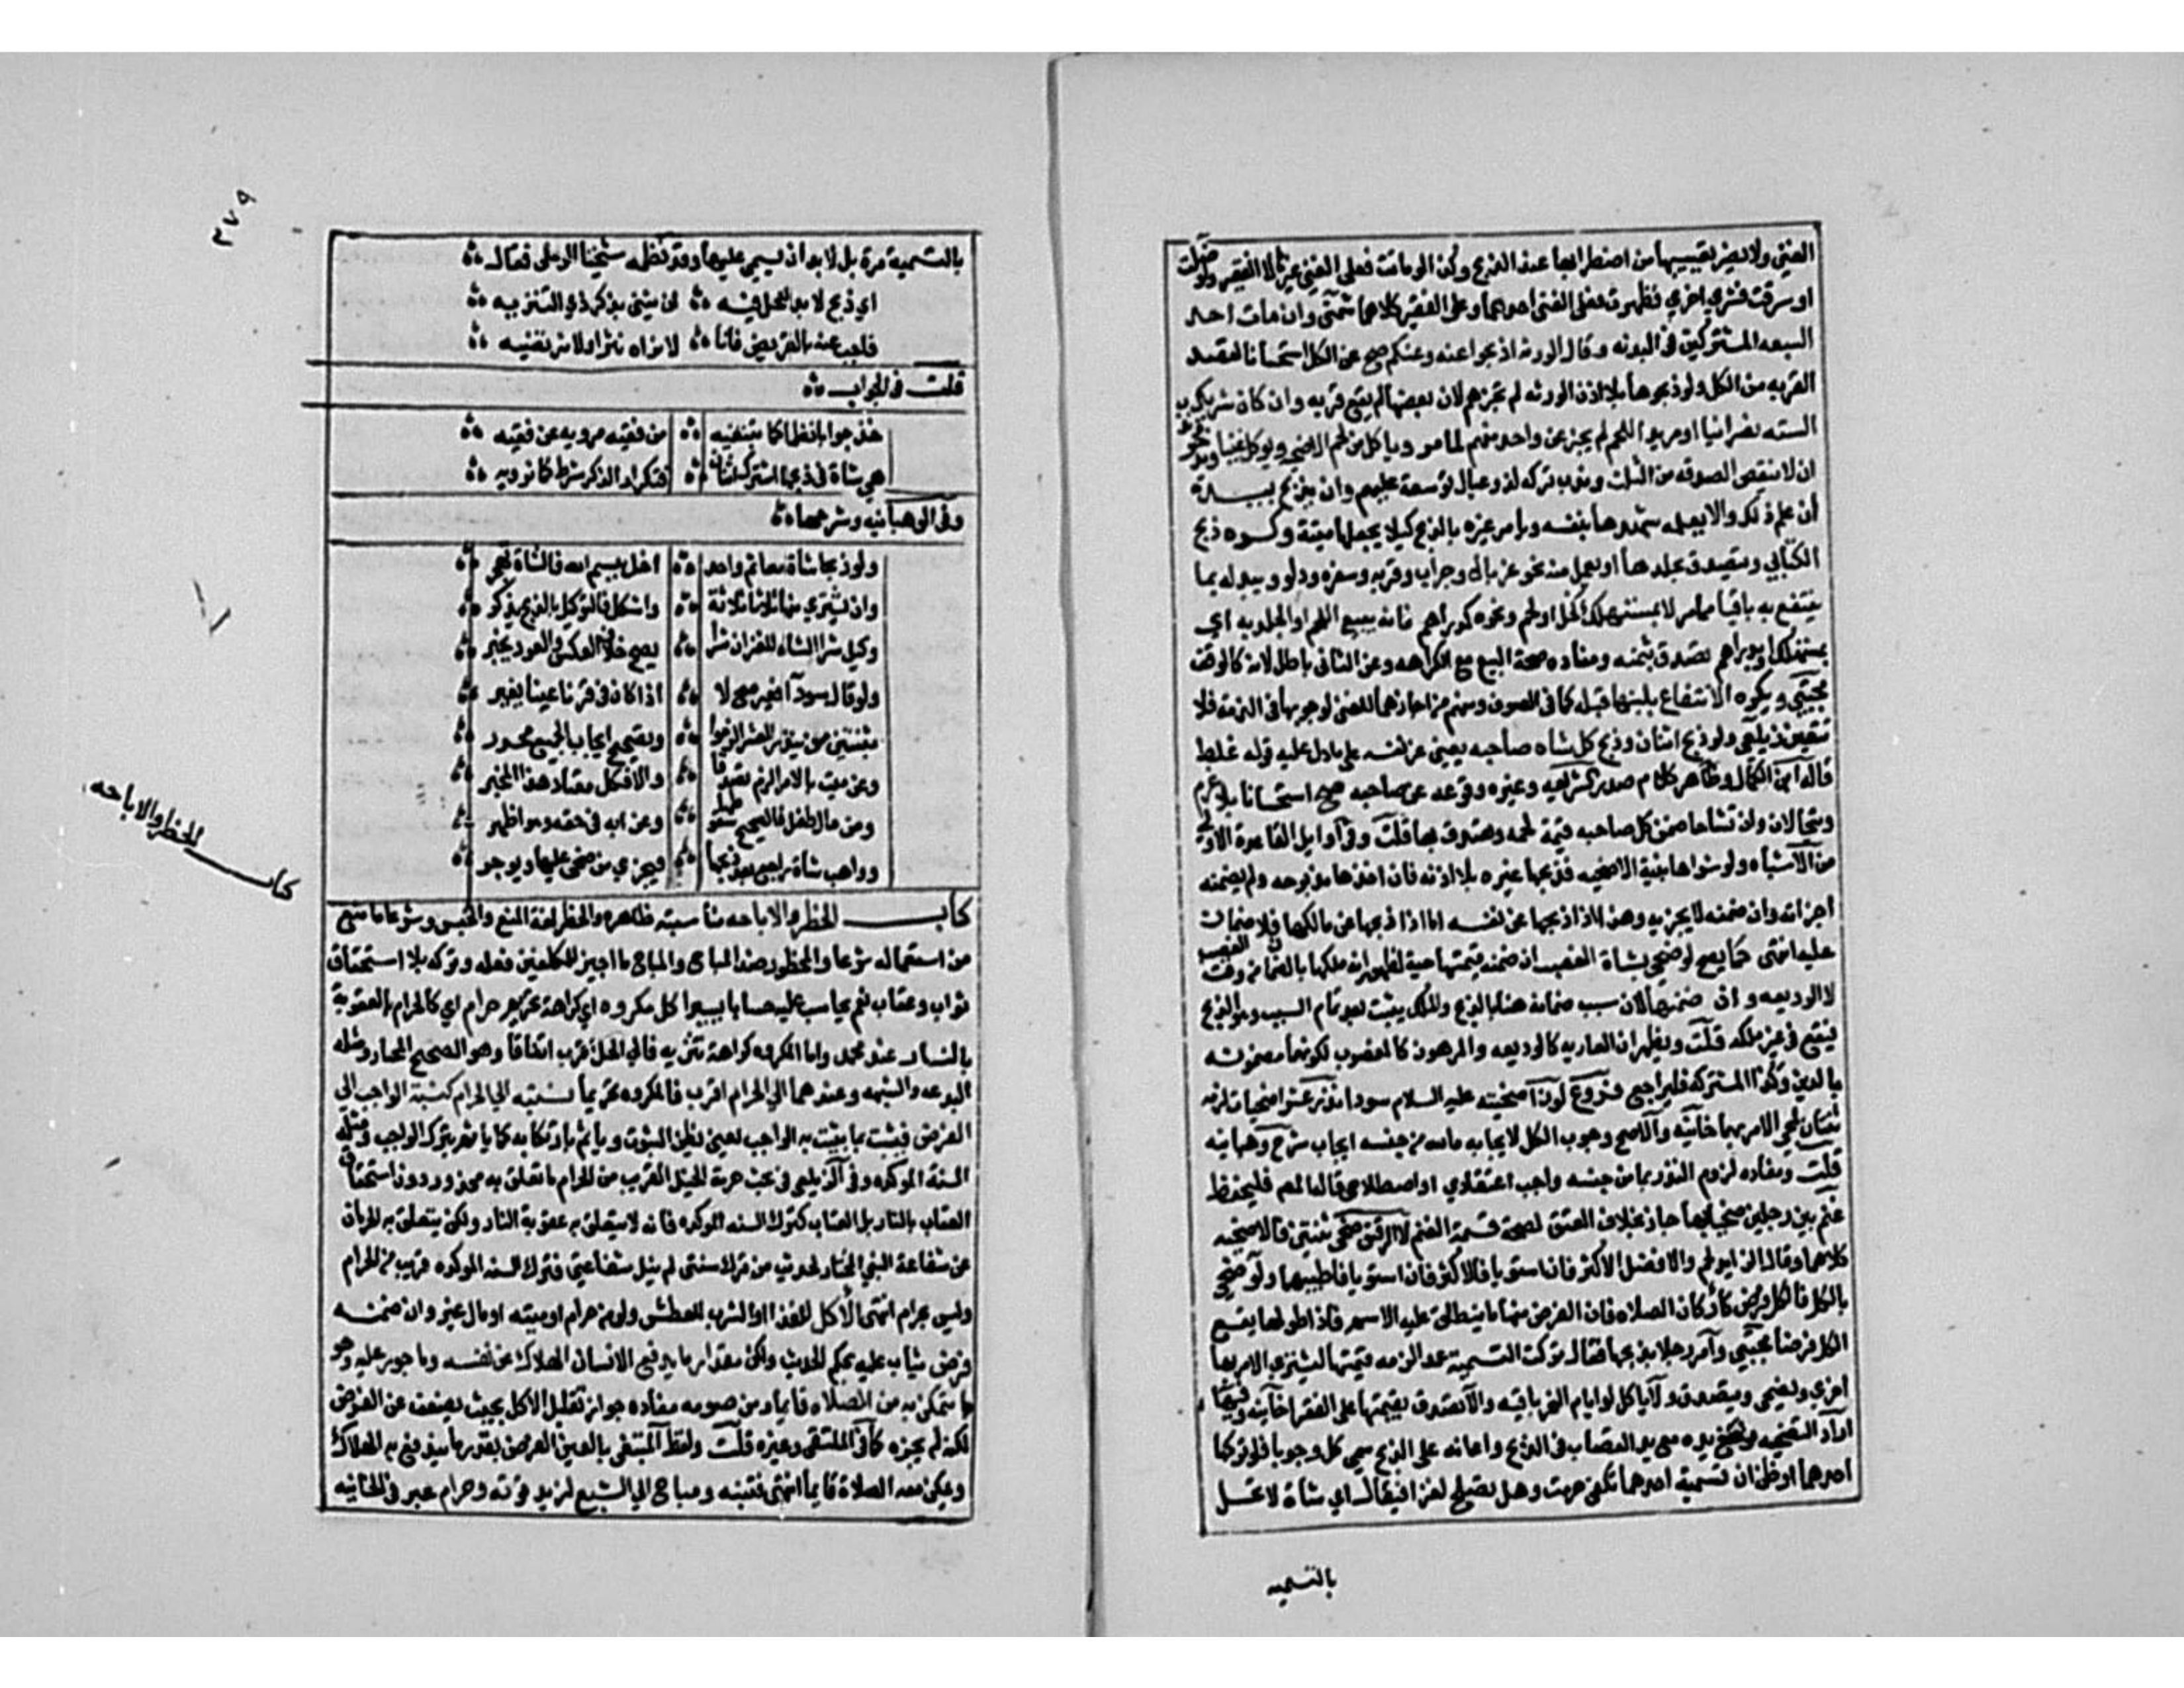 الغني ولا يضر تعييبها من اضطرابها عند الذبح وكذا لو ماتت فعلى الغني غيرها لا الفقير ولو ضلت
او سرقت فشري اخري فظهرت فعلى الغني احداهما وعلى الفقير كلاهما شمني وان مات احد
السبعه المشتركين في البدنه وقال الورثه اذبحوا عنه وعنكم صح عن الكل استحسانا لقصد
القربه من الكل ولو ذبحوها بلا اذن الورثه لم تجزهم لان بعضها لم يقع قربه وان كان شريك
السته نصرانيا او مريدا اللحم لم يجز عن واحد منهم لما مر وياكل من لحم الاضحيه ويوكل غنيا وندب
ان لا ينقص الصدقه من الثلث وندب تركه لذو عيال توسعة عليهم وان يذبح بيده
ان علم ذلك والا يعلمه شهدها بنفسه ويامر غيره بالذبح كيلا يجعلها ميتة وكره ذبح
الكتابي ويتصدق بجلدها او يعمل منه نحو غربال وجراب وقربه وسفره ودلو ويبدله بما
ينتفع به باقيا مما مر لا بمستهلك كخل او لحم ونحوه كدراهم فان بيع اللحم او الجلد به اي
بمستهلك او بدراهم تصدق بثمنه ومفاده صحة البيع مع الكراهه وعن الثاني باطل لانه كالوقف
مجتبي ويكره الانتفاع بلبنها قبله كما في الصوف ومنهم من اجازهما للغني لوجوبها في الذمه فلا
تتعين زيلعي ولو ذبح اثنان وذبح كل شاة صاحبه يعني عن نفسه على ما دل عليه قوله غلط
قاله ابن الكمال وظاهر كلام صدر الشريعه وغيره وقوعه عن صاحبه صح استحسانا بلا غرم
ويتحالان وان تشاحا ضمن كل صاحبه قيمة لحمه وتصدق بها قلت وفي اوايل القاعدة الاولي
من الاشباه ولو شراها بنية الاضحيه فذبحها غيره بلا اذنه فان اخذها مذبوحه ولم يضمنه
اجزاته وان ضمنه لا يجزيه وهذا اذا ذبحها عن نفسه اما اذا ذبحها عن مالكها فلا ضمان
عليه انتهى كما يصح لو ضحي بشاة الغصب ان ضمنه قيمتها حية لظهور انه ملكها بالضمان من وقت الغصب
لا الوديعه وان ضمنها لان سبب ضمانه هنا بالذبح والملك يثبت بعد تمام السبب وهو الذبح
فيقع في غير ملكه قلت ويظهر ان العاريه كالوديعه والمرهونه كالمغصوب لكونها مضمونه
بالدين وكذا المشتركه فليراجع فروع لون اضحيته عليه السلام سودا نذر عشر اضحيات لزمه
ثنتان لمجي الاثر بهما خانيه والاصح وجوب الكل لايجابه ما لله من جنسه ايجاب شرح وهبانيه
قلت ومفاده لزوم النذر بما من جنسه واجب اعتقادي او اصطلاحي قاله المصنف فليحفظ
غنم بين رجلين ضحيا بها جاز بخلاف العتق لصحة قسمة الغنم لا الرقيق ضحي ثنتين فالاضحيه
كلاهما وقال الزايد لحم والافضل الاكثر فان استويا فالاكثر فان استويا فاطيبهما ولو ضحي
بالكل فالكل فرض كاركان الصلاه فان الفرض منها ما ينطلق عليه الاسم فاذا طولها يقع
الكل فرضا مجتبي وامر رجلا بذبحها فقال تركت التسمية عمدا لزمه قيمتها ليشتري الامر بها
اخري ويضحي ويتصدق ولا ياكل لو ايام النحر باقيه والا تصدق بقيمتها على الفقرا خانيه وفيها
اراد التضحيه فوضع يده مع يد القصاب في الذبح واعانه على الذبح سمي كل وجوبا فلو تركها
احدهما او ظن ان تسمية احدهما تكفي حرمت وهل تصلح لغزا فيقال اي شاة لا تحل
بالتسميه
٢٧٩
بالتسمية مرة بل لا بد ان يسمي عليها وقد نظمه شيخنا الرملى فقال
اي ذبح لا بد للحل فيه ان يثني بذكر ذي التنزيه
فاجب عنه بالقريض فانا لا نراه نثرا ولا نرتضيه
قلت في الجواب
خذ جوابا نظما كما تبتغيه من فقيه مرويه عن فقيه
هي شاة في ذبحها اشترك اثنان فتكرار الذكر شرط كما نرويه
وفي الوهبانيه وشرحها
ولو ذبحا شاة معا ثم واحد اخل ببسم الله فالشاة تهجر
وان يشتري منها ثلاثا ثلاثة واشكل فالتوكيل بالذبح يذكر
وكيل شرا الشاه للغنز ان شرا يصح خلاف العكس والعود يخبر
ولو قال سودا فغير صح لا اذا كان في قرنا عينا يغير
بثنتين من ينذر العشر الزموا وتصحيح ايجاب الجميع محرر
وعن ميت بالامر الزم تصدقا والا فكل معتاد هذا المخير
ومن مال طفل فالصحيح سقوطها وعن ابه في حقه وهو اظهر
وواهب شاة راجع بعد ذبحها فيجزي من ضحي عليها ويوجر
كتاب الحظر والاباحه
كتاب الحظر والاباحه مناسبته ظاهره والحظر لغة المنع والحبس وشرعا ما منع
من استعماله شرعا والمحظور ضد المباح والمباح ما اجيز للمكلفين فعله وتركه بلا استحقاق
ثواب وعقاب نعم يحاسب عليه حسابا يسيرا كل مكروه اي كراهة تحريم حرام اي كالحرام بالعقوبة
بالنار عند محمد واما المكروه كراهة تنزيه فالي الحل اقرب اتفاقا وهو الصحيح المختار ومثله
البدعه والشبهه وعندهما الي الحرام اقرب فالمكروه تحريما نسبته الي الحرام كنسبة الواجب الي
الفرض فيثبت بما يثبت به الواجب يعني بظني الثبوت وياثم بارتكابه كما ياثم بترك الواجب ومثله
السنة الموكده وفي الزيلعي في بحث حرمة الخيل القريب من الحرام ما تعلق به محذور دون استحقاق
العقاب بالنار بل العتاب كترك السنه الموكده فانه لا يتعلق به عقوبة النار ولكن يتعلق به الحرمان
عن شفاعة النبي المختار لحديث من ترك سنتي لم ينل شفاعتي فترك السنه الموكده قريب من الحرام
وليس بحرام انتهى الاكل للغذا او الشرب للعطش ولو من حرام او ميته او مال غير وان ضمنه
فرض يثاب عليه بحكم الحديث ولكن مقدار ما يدفع الانسان الهلاك عن نفسه وماجور عليه وهو
ما يتمكن به من الصلاه قايما ومن صومه مفاده جواز تقليل الاكل بحيث يضعف عن الفرض
لكنه لم يجزه كما في الملتقى وغيره قلت ولفظ المبتغى بالغين الفرض بقدر ما يندفع به الهلاك
ويمكن معه الصلاة قايما انتهى فتنبه ومباح الي الشبع لتزيد قوته وحرام عبر في الخانيه